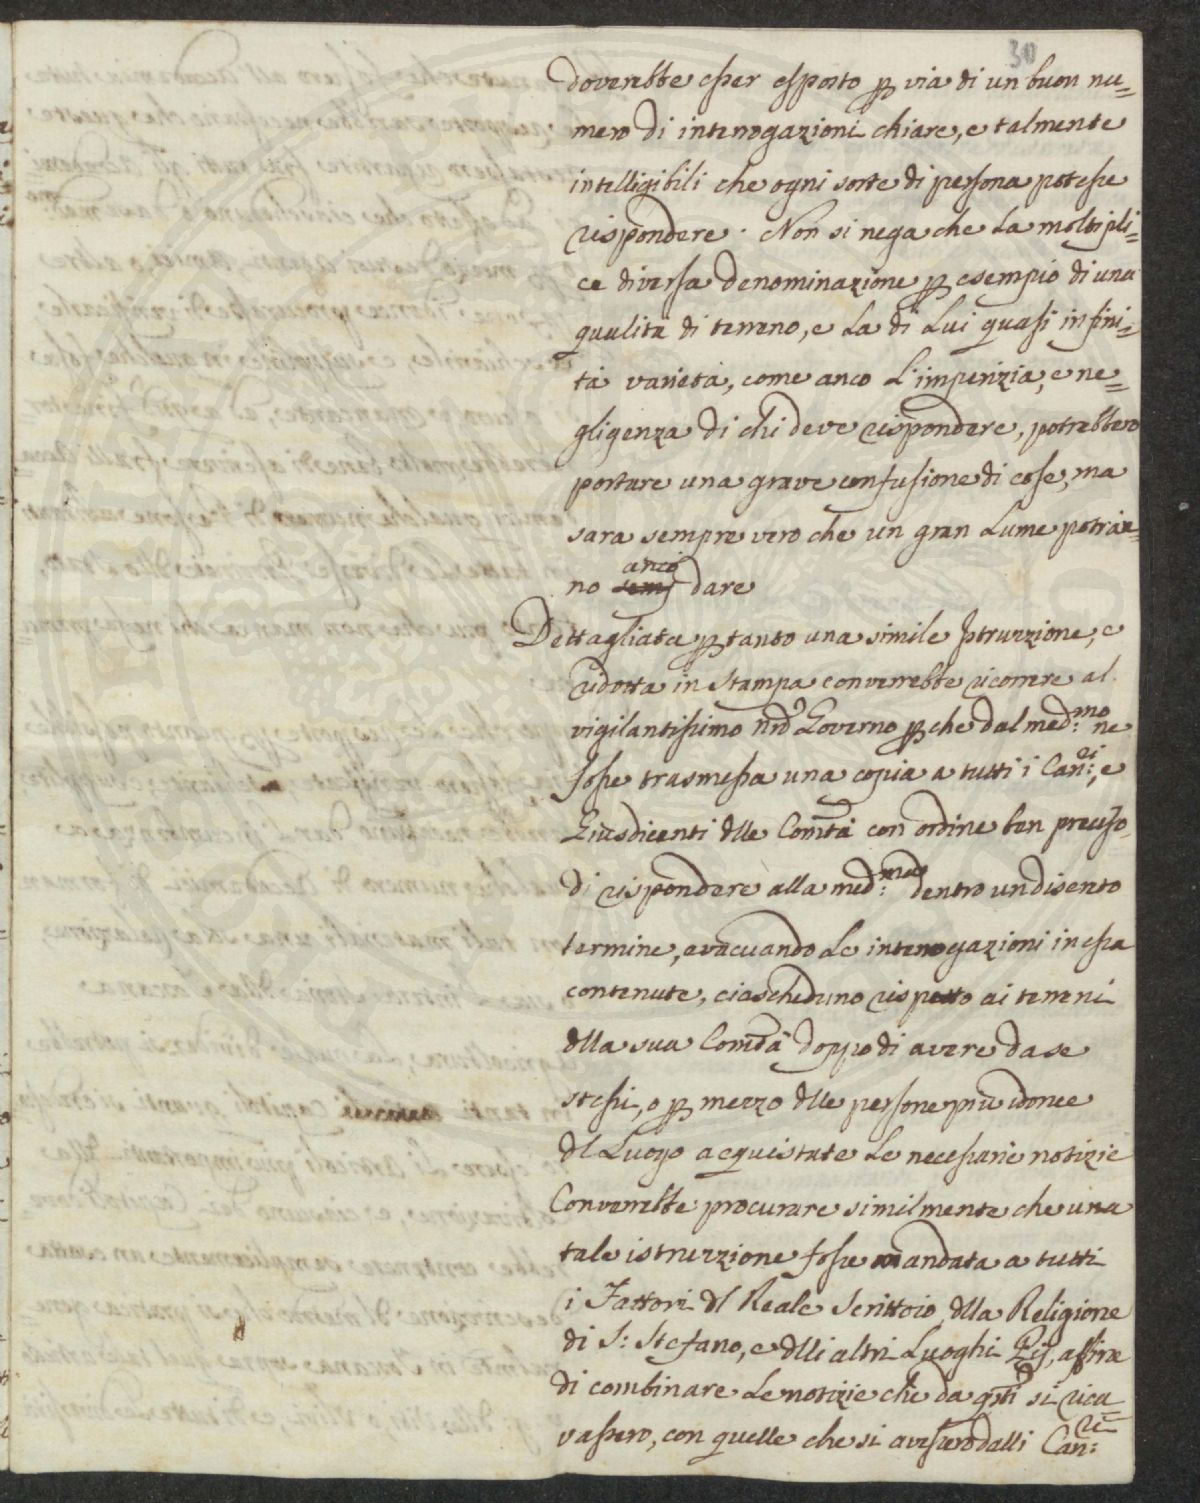 30
doverebbe esser esposto p via di un buon nu=
mero di interrogazioni chiare, e talmente
intelligibili che ogni sorte di persona potesse
rispondere. Non si nega che la moltipli=
ce diversa denominazione p esempio di una
qualità di terreno, e la di lui quasi infini=
tà varietà, come anco l'imperizia, e ne=
gligenza di chi deve rispondere, potrebbero
portare una grave confusione di cose, ma
sarà sempre vero che un gran lume potran=
no anco dare
Dettagliata p tanto una simile Istruzzione, e
ridotta in stampa converrebbe ricorrere al
vigilantissimo nro Governo p che dal med:mo ne
fosse trasmessa una copia a tutti i Can:ri, e
Giusdicenti dlle Comtà con ordine ben preciso
di rispondere alla med:ma dentro un disento
termine, evacuando le interrogazioni in essa
contenute, ciascheduno rispetto ai terreni
dlla sua Comtà doppo di avere da se
stessi, o p mezzo dlle persone più idonee
dl Luogo acquistate le necessarie notizie
Converrebbe procurare similmente che una
tale istruzzione fosse mandata a tutti
i Fattori dl Reale Scrittoio, dlla Religione
di S: Stefano, e dlli altri Luoghi Pij, affine
di combinare le notizie che da qsti si rica=
vassero, con quelle che si avessero dalli Can:ri